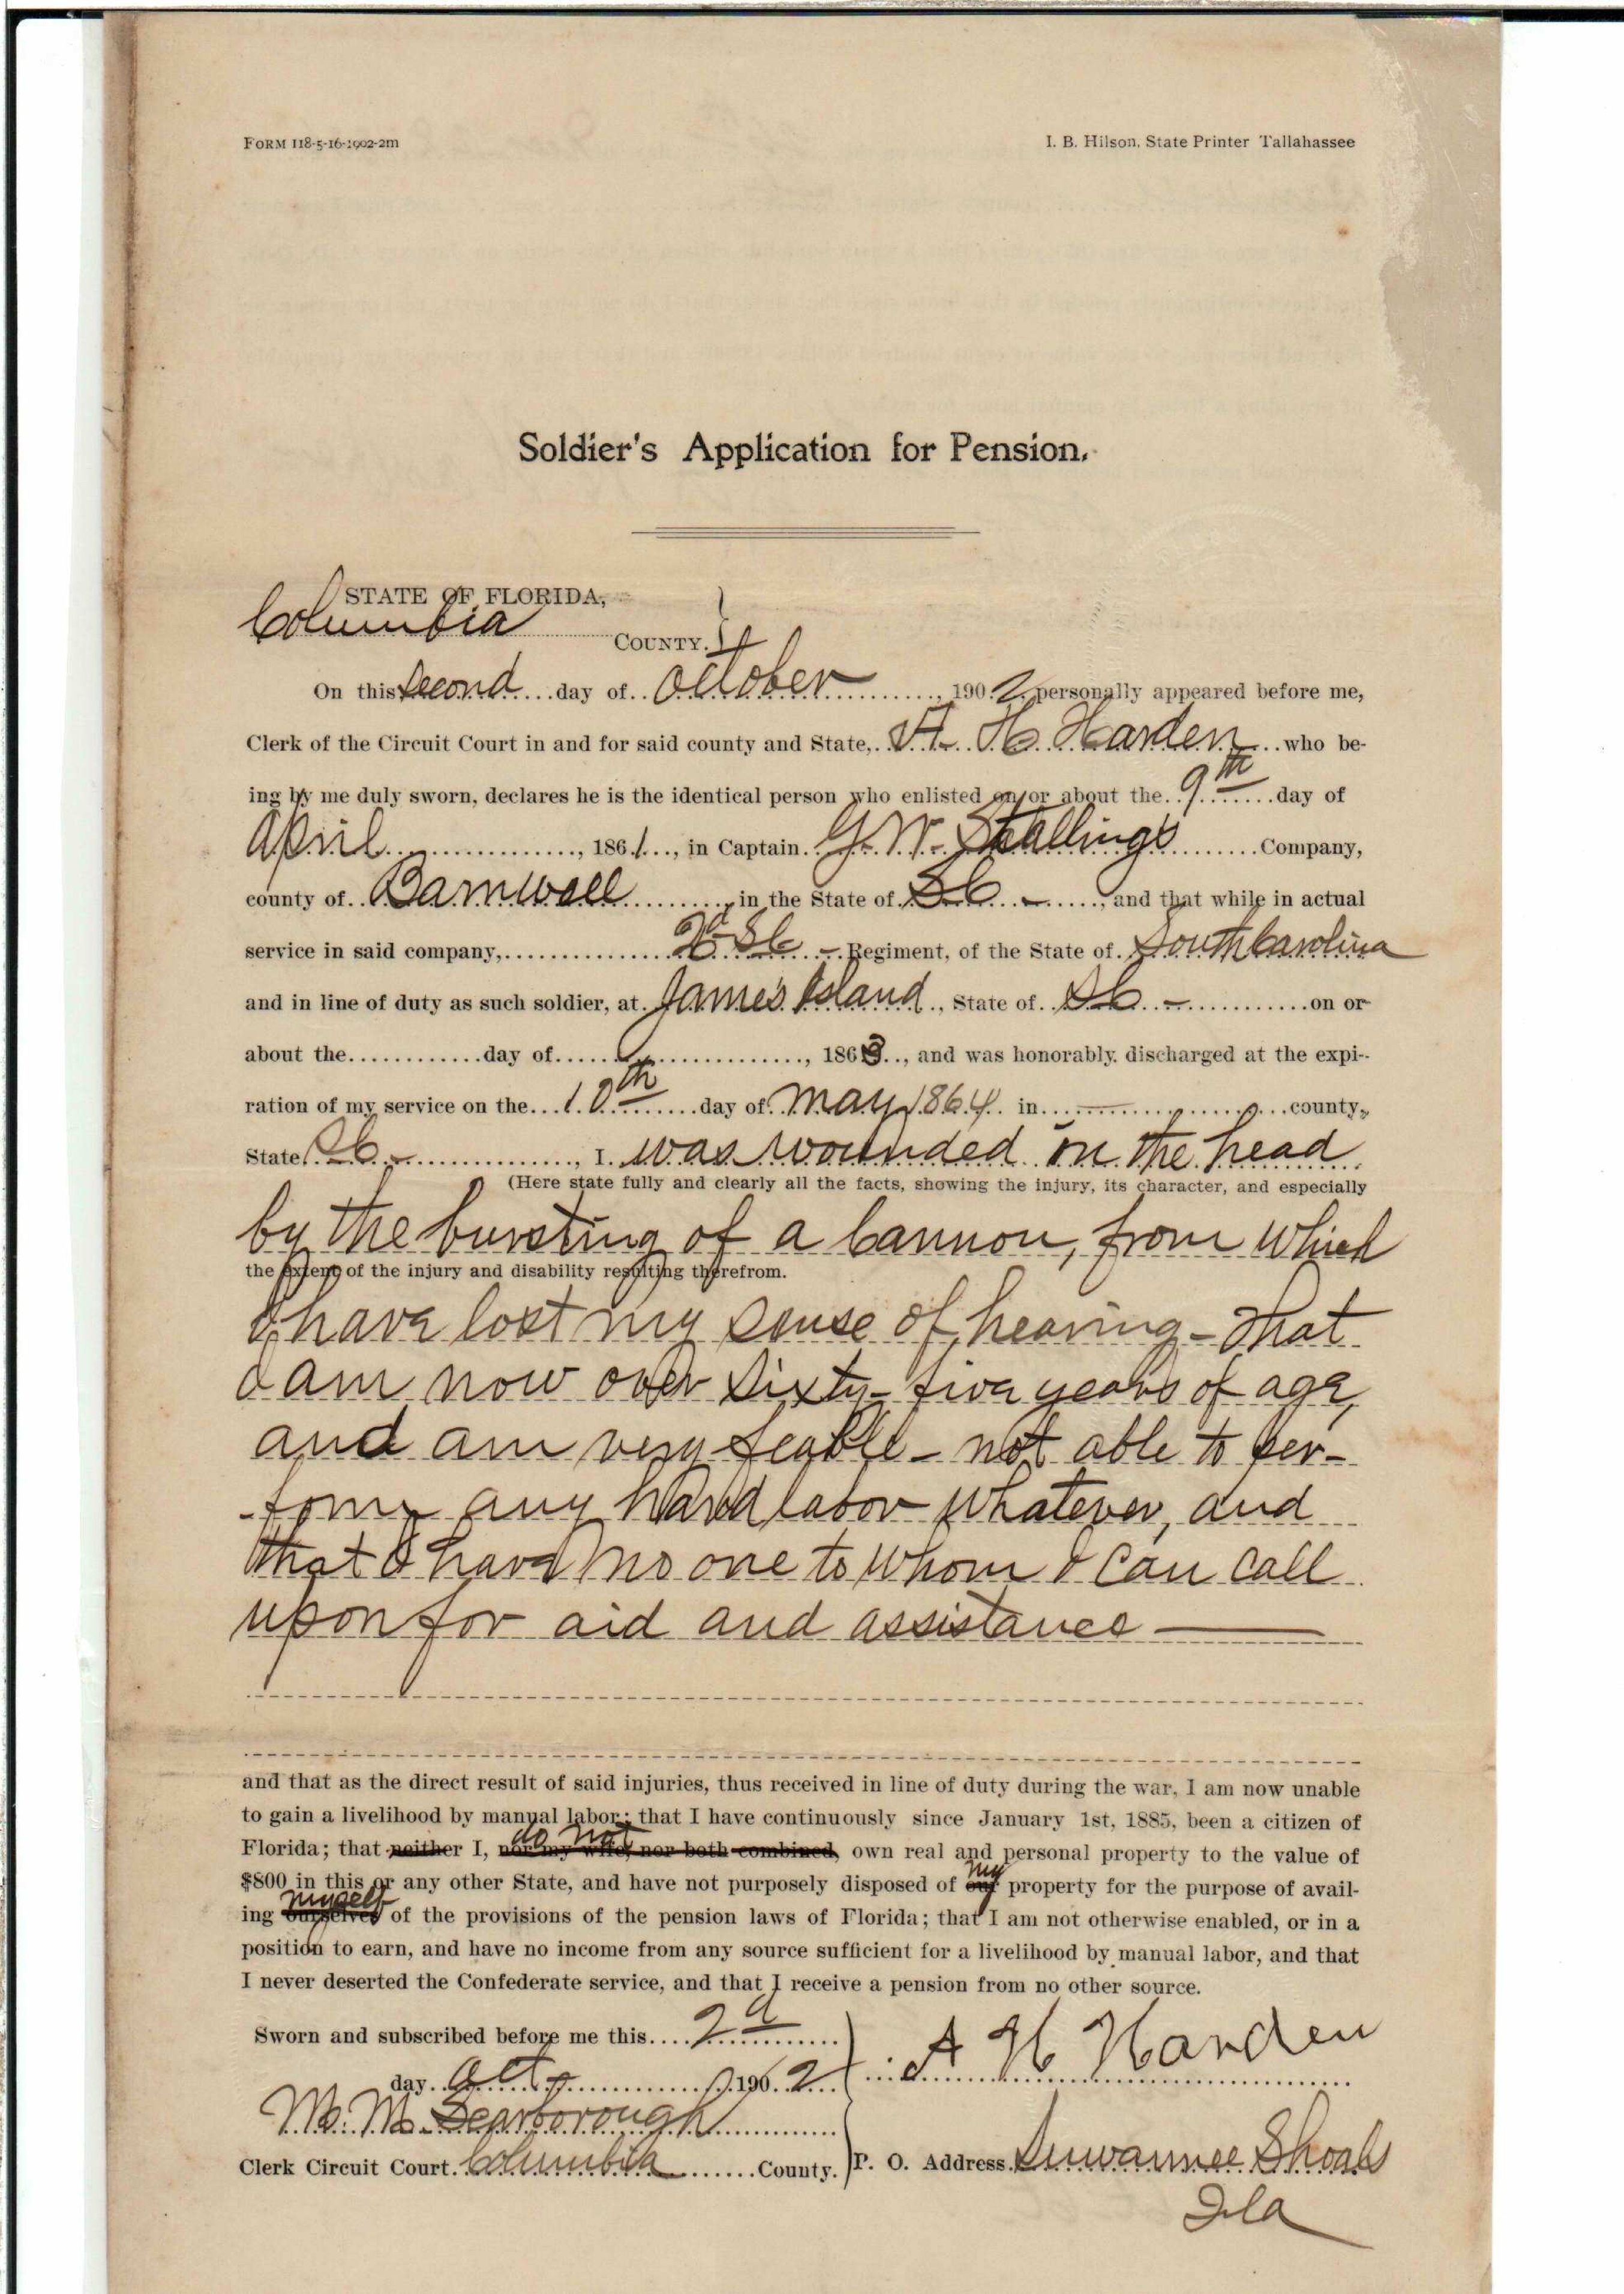 FORM 118-5-16-1902-2m I. B. Hilson, State Printer Tallahassee
Soldier's Application for Pension.
STATE OF FLORIDA,
Columbia COUNTY.
On this Second day of October, 1902 personally appeared before me,
Clerk of the Circuit Court in and for said county and State, A. H. Harden who be-
ing by me duly sworn, declares he is the identical person who enlisted on or about the 9th day of
April, 1861, in Captain G. W. Stallings Company,
county of Barnwell in the State of SC -, and that while in actual
service in said company, 2d SC - Regiment, of the State of South Carolina
and in line of duty as such soldier, at James Island, State of SC - on or
about the day of, 1863, and was honorably discharged at the expi-
ration of my service on the 10th day of May 1864 in county,
State SC -, I was wounded in the head
(Here state fully and clearly all the facts, showing the injury, its character, and especially
by the bursting of a Cannon, from which
the extent of the injury and disability resulting therefrom.
I have lost my sense of hearing - That
I am now over Sixty-five years of age,
and am very feable - not able to per-
-form any hard labor whatever, and
that I have no one to whom I can call
upon for aid and assistance
and that as the direct result of said injuries, thus received in line of duty during the war, I am now unable
to gain a livelihood by manual labor; that I have continuously since January 1st, 1885, been a citizen of
Florida; that neither I, nor my wife, nor both combined, do not own real and personal property to the value of
$800 in this or any other State, and have not purposely disposed of our my property for the purpose of avail-
ing ourselves myself of the provisions of the pension laws of Florida; that I am not otherwise enabled, or in a
position to earn, and have no income from any source sufficient for a livelihood by manual labor, and that
I never deserted the Confederate service, and that I receive a pension from no other source.
Sworn and subscribed before me this 2d
day Oct, 1902
A H Harden
M. M. Scarborough
Clerk Circuit Court Columbia County. P. O. Address Suwannee Shoals
Fla